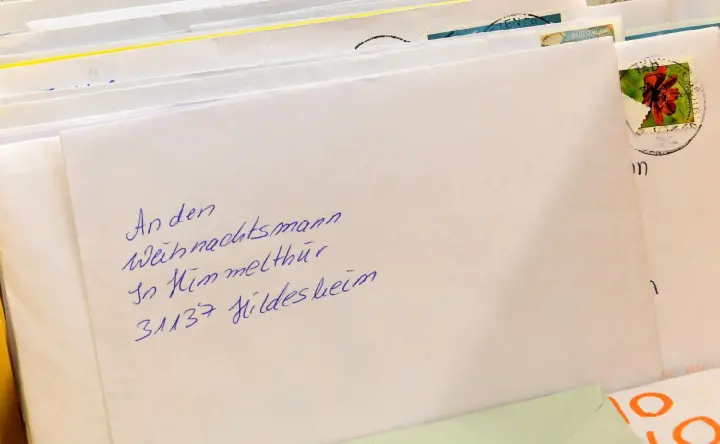 An den
Weihnachtsmann
In Himmelthür
31137 Hildesheim